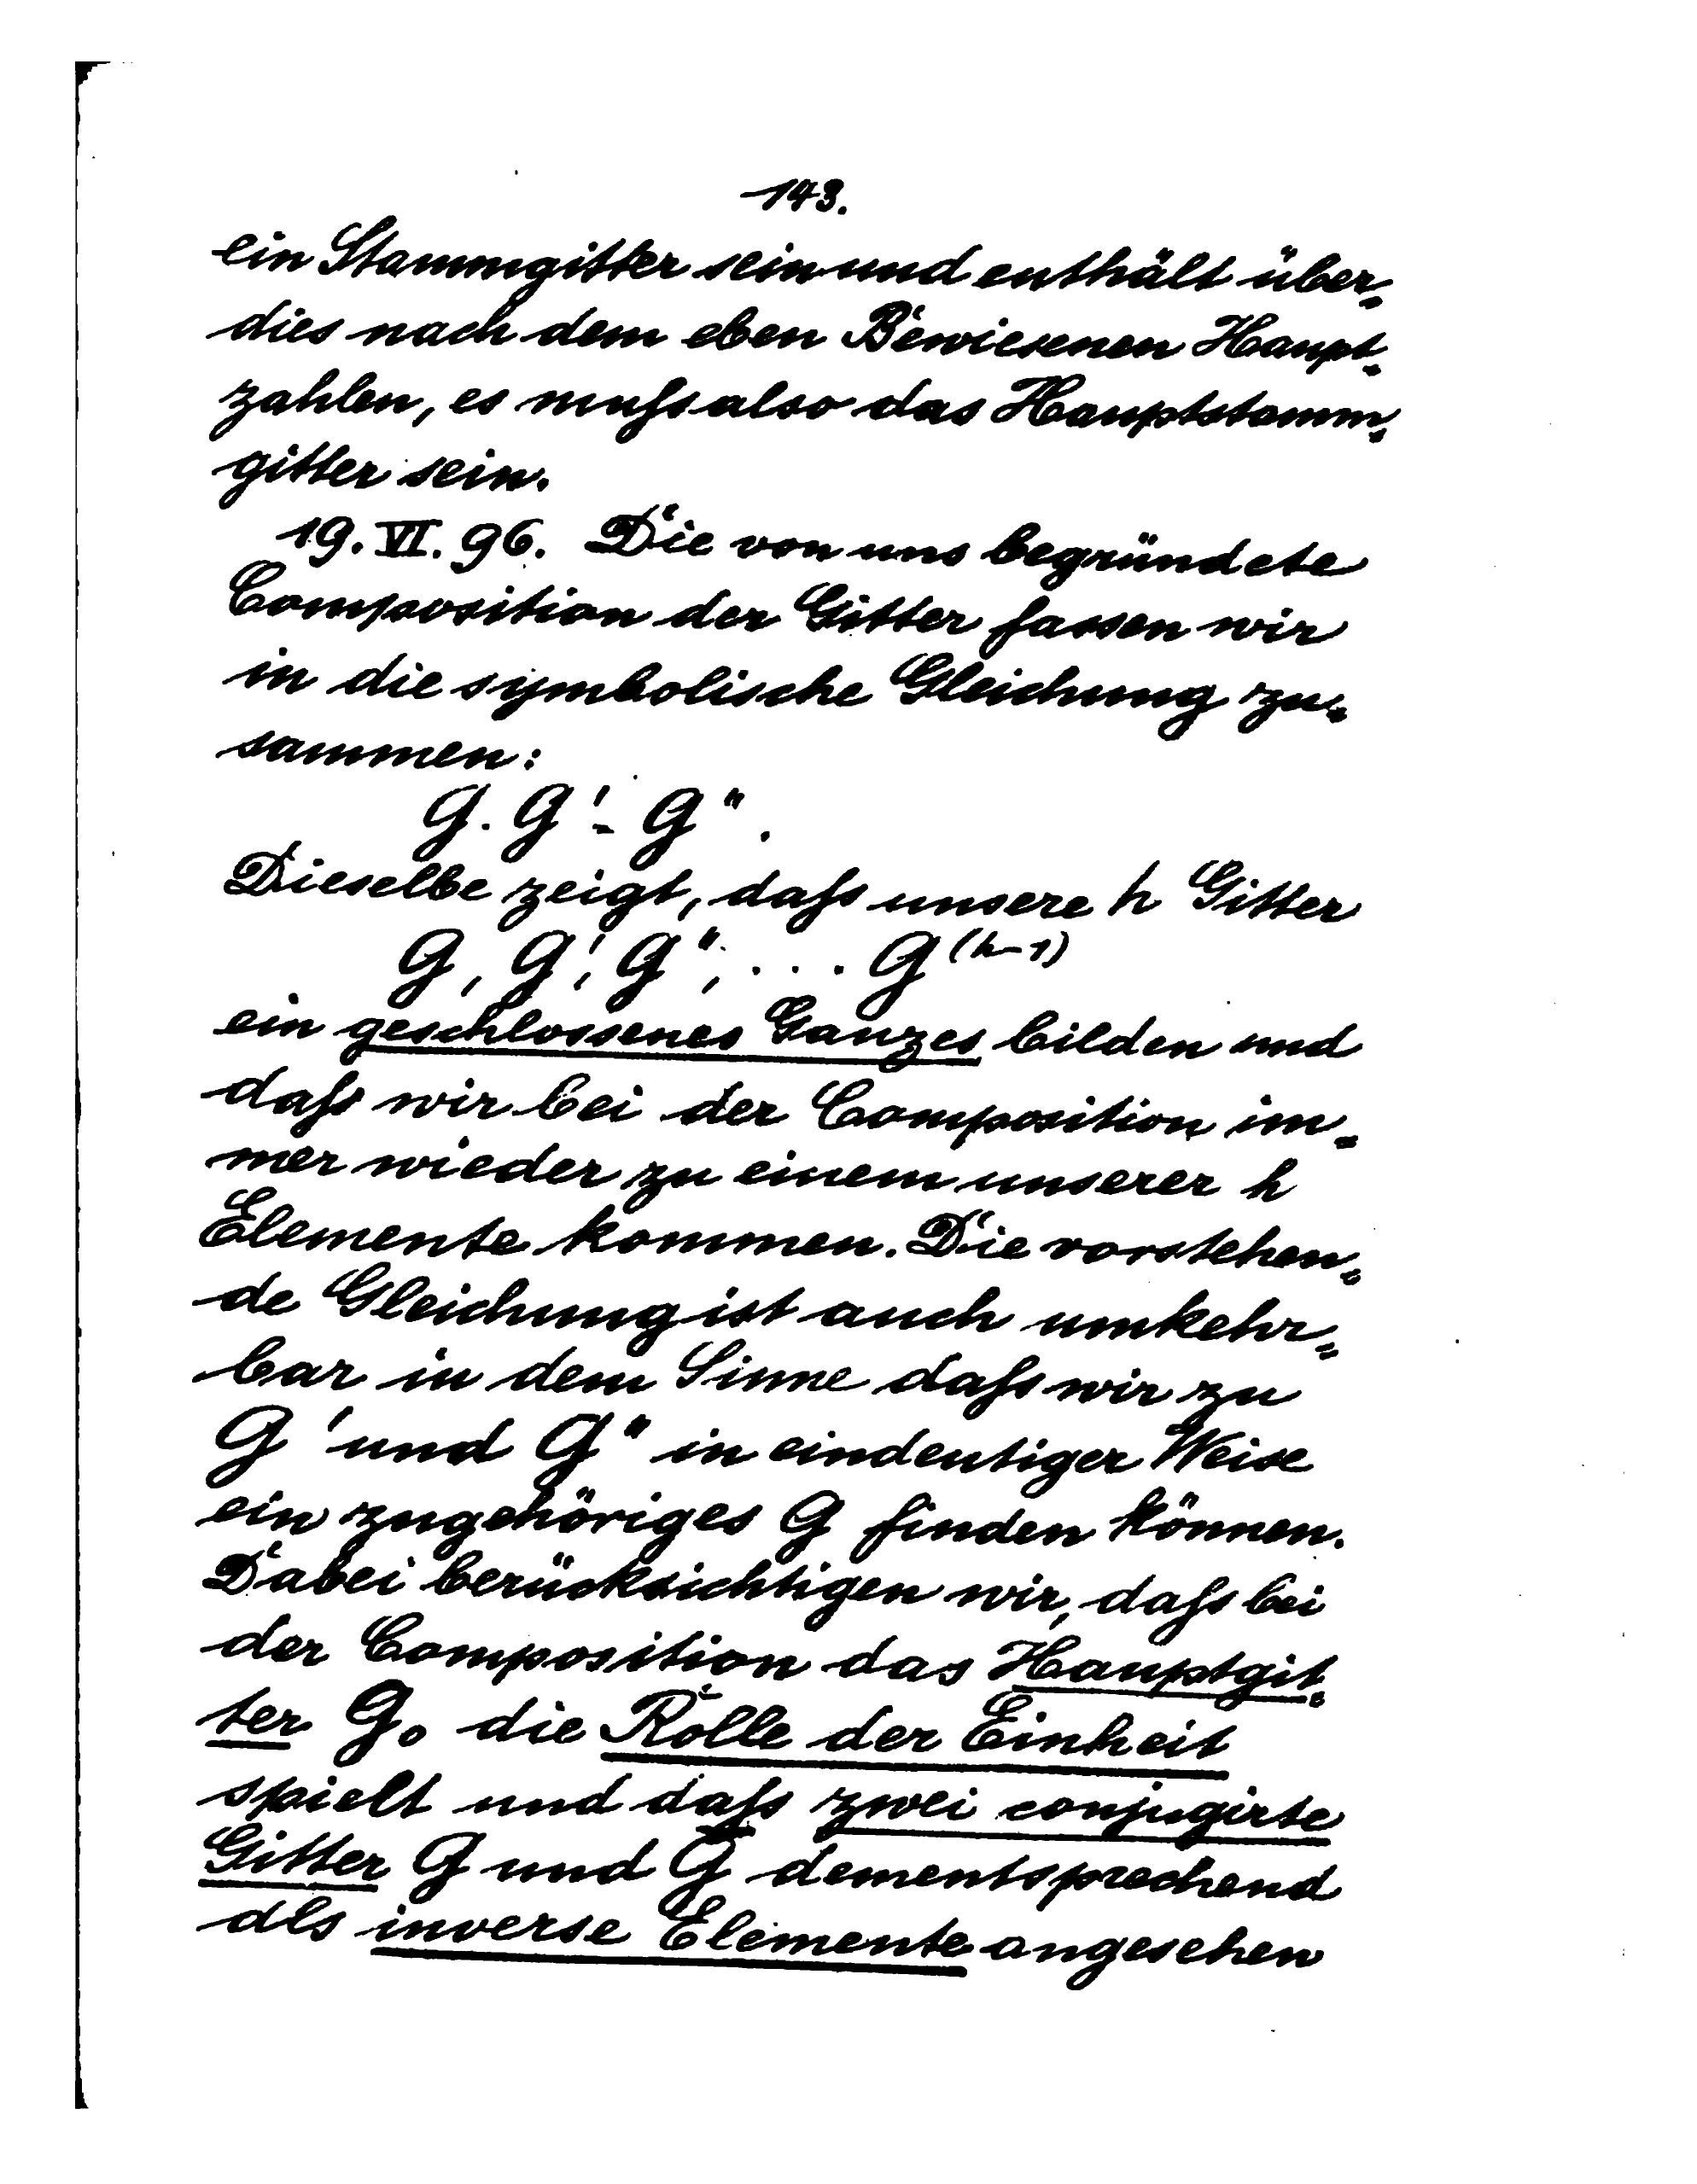 143.
ein Stammgitter sein und enthält über=
dies nach dem eben Bewiesenen Haupt=
zahlen, es muſs also das Hauptstamm=
gitter sein.
19. VI. 96. Die von uns begründete
Composition der Gitter fassen wir
in die symbolische Gleichung zu=
sammen:
G. G' = G".
Dieselbe zeigt, daſs unsere h Gitter
G, G', G", . . . G^(h-1)
ein geschlossenes Ganzes bilden und
daſs wir bei der Composition im=
mer wieder zu einem unserer h
Elemente kommen. Die vorstehen=
de Gleichung ist auch umkehr=
bar in dem Sinne daſs wir zu
G' und G" in eindeutiger Weise
ein zugehöriges G finden können.
Dabei berücksichtigen wir, daſs bei
der Composition das Hauptgit=
ter G₀ die Rolle der Einheit
spielt und daſs zwei conjugirte
Gitter G und G̅ dementsprechend
als inverse Elemente angesehen